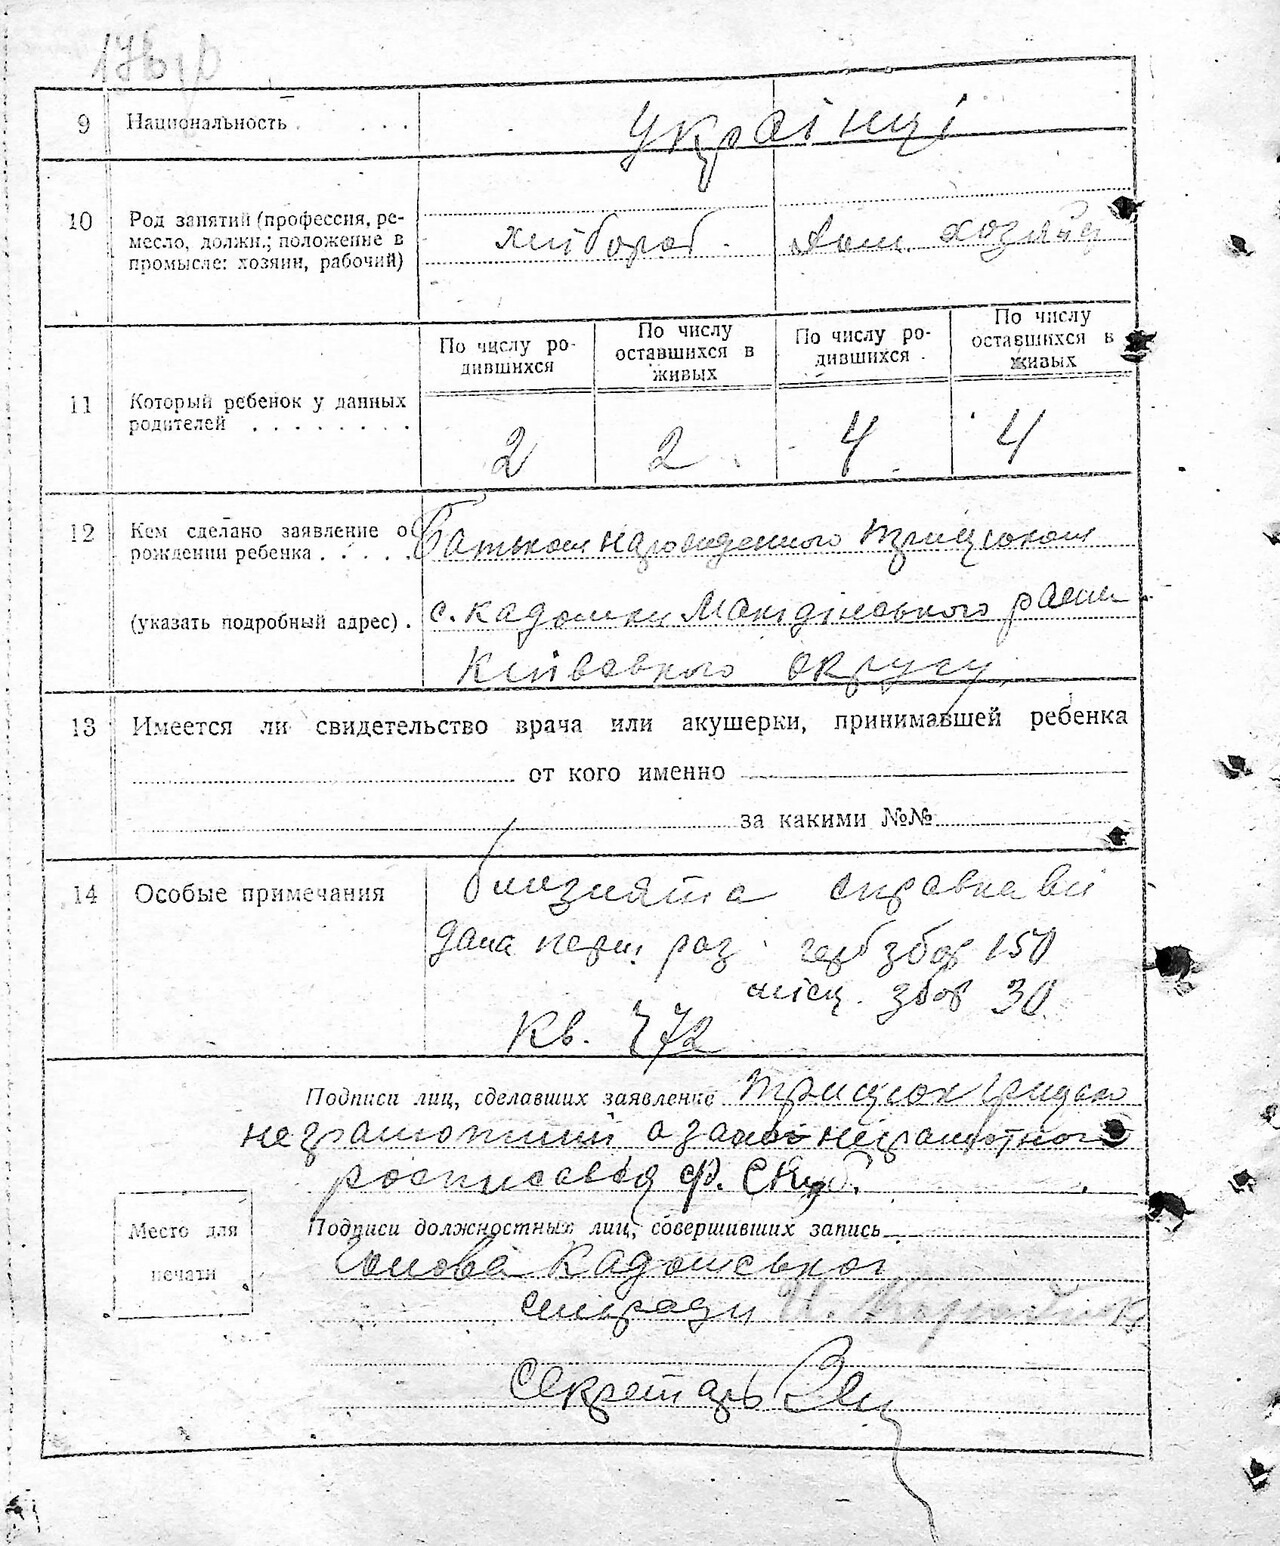 9 Национальность . . . . українці
10 Род занятий (профессия, ре-
месло, должн.; положение в
промысле: хозяин, рабочий)
хлібороб. дом хозяйц
11 Который ребенок у данных
родителей . . . . . . . .
По числу ро-
дившихся
По числу
оставшихся в
живых
По числу ро-
дившихся .
По числу
оставшихся в
живых
2 2 4 4
12 Кем сделано заявление о
рождении ребенка . . . . .
(указать подробный адрес) .
Батьком народженного Грицюком
с. Кадомки
округу
13 Имеется ли свидетельство врача или акушерки, принимавшей ребенка
от кого именно
за какими №№
14 Особые примечания
близнята справка ви
дана перш раз герб збор 150
місц. збор 30
Кв. 472
Подписи лиц, сделавших заявление Грицюк
неграмотний а за неграмотного
росписався Ф.
Место для
печати
Подписи должностных лиц, совершивших запись
Голова Кадомської
сільради
Секретарь